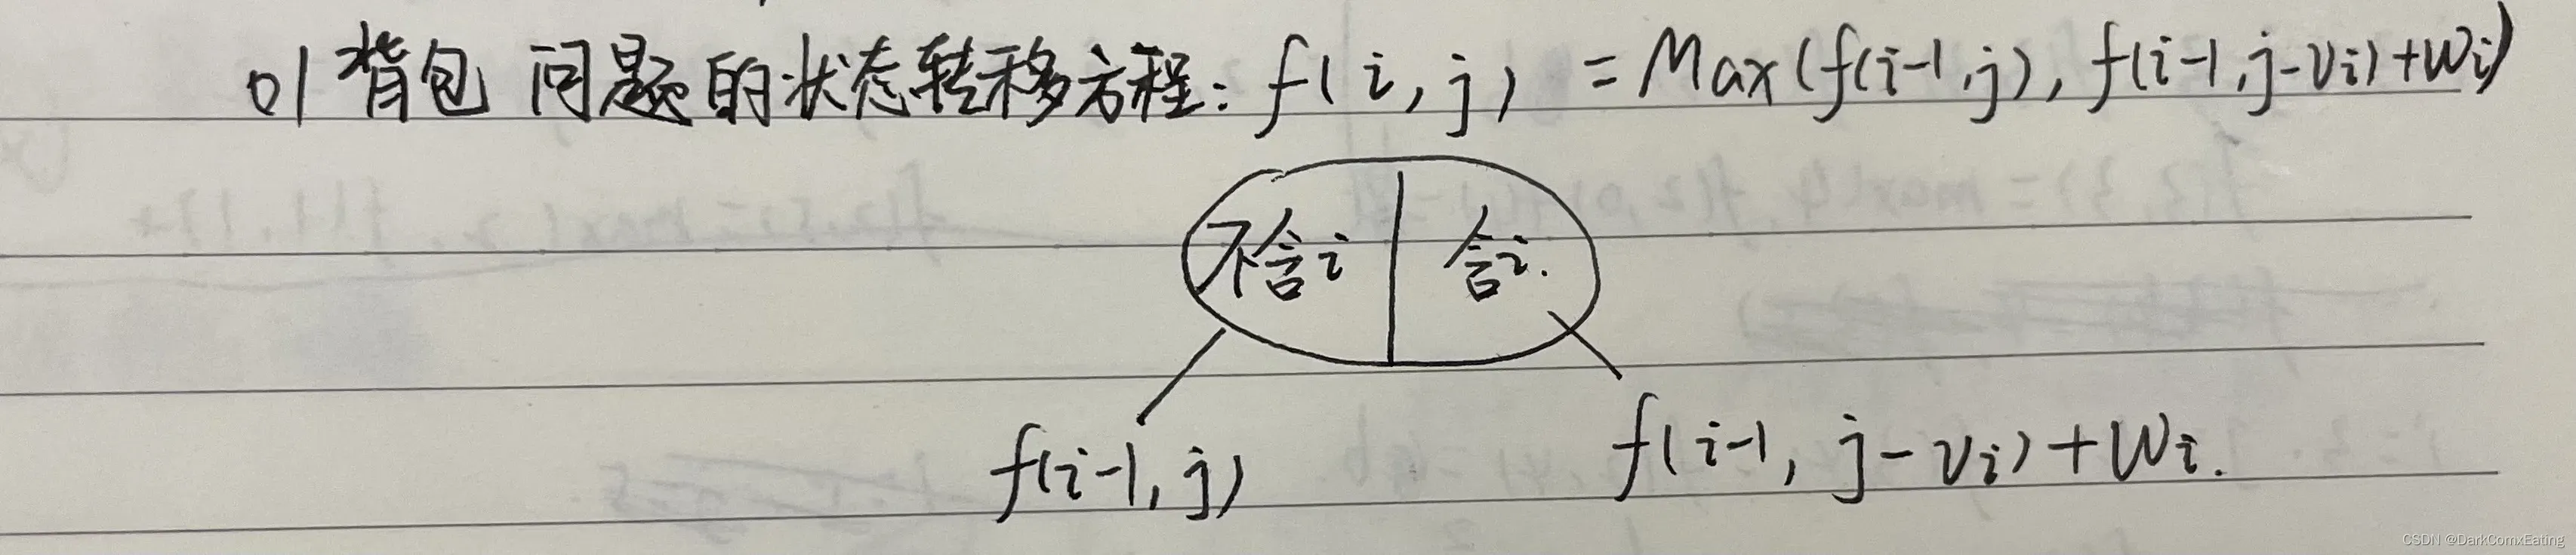 01背包 问题的状态转移方程: f(i,j) = Max(f(i-1,j), f(i-1,j-vi)+wi)
不含i 含i.
f(i-1,j) f(i-1, j-vi)+wi.
CSDN @DarkComxEating